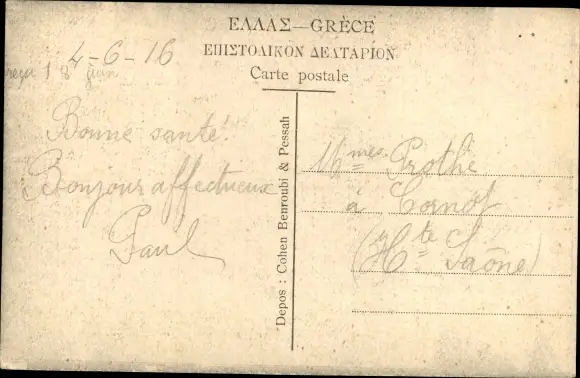 ΕΛΛΑΣ—GRÈCE
ΕΠΙΣΤΟΛΙΚΟΝ ΔΕΛΤΑΡΙΟΝ
Carte postale
4-6-16
8 juin
Bonne santé!
Bonjour affectueux
Paul
Depos : Cohen Benroubi & Pessah
Mmes Prothe
à Cornot
(Hte Saône)